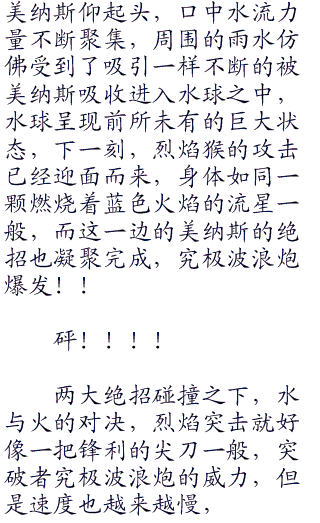 美纳斯仰起头，口中水流力
量不断聚集，周围的雨水仿
佛受到了吸引一样不断的被
美纳斯吸收进入水球之中，
水球呈现前所未有的巨大状
态，下一刻，烈焰猴的攻击
已经迎面而来，身体如同一
颗燃烧着蓝色火焰的流星一
般，而这一边的美纳斯的绝
招也凝聚完成，究极波浪炮
爆发！！
砰！！！！
两大绝招碰撞之下，水
与火的对决，烈焰突击就好
像一把锋利的尖刀一般，突
破者究极波浪炮的威力，但
是速度也越来越慢，